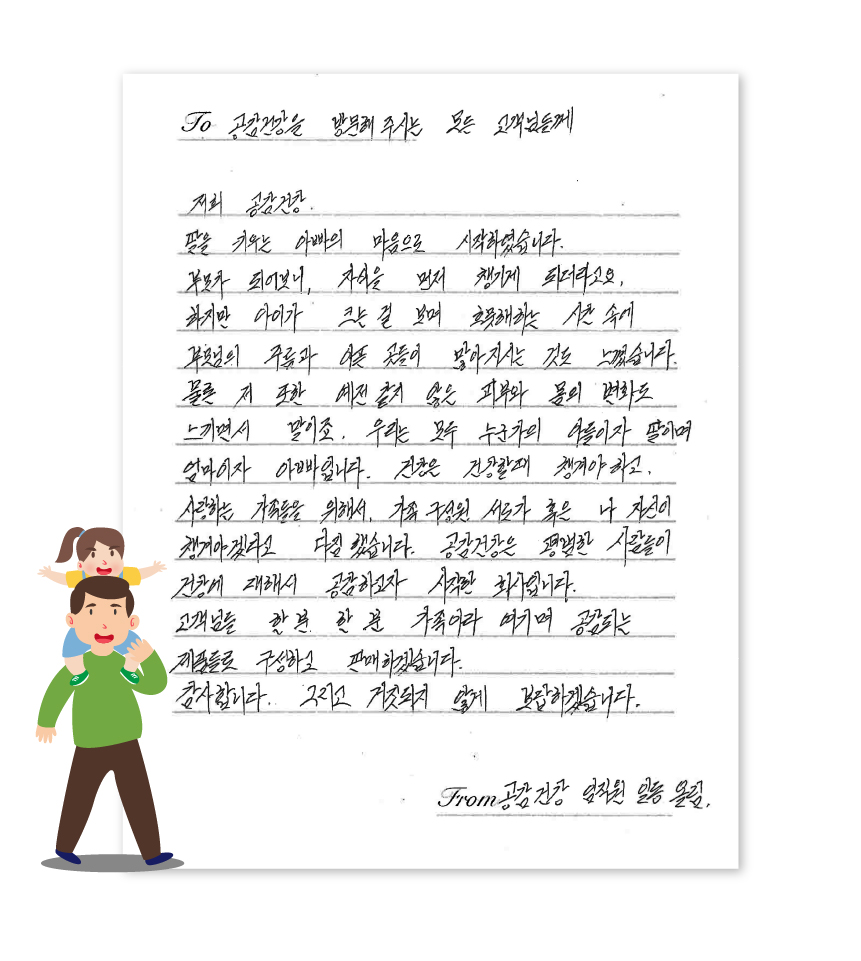 To 공감건강을 방문해 주시는 모든 고객님들께
저희 공감건강.
딸을 키우는 아빠의 마음으로 시작하였습니다.
부모가 되어보니, 자식을 먼저 챙기게 되더라고요.
하지만 아이가 크는 걸 보며 흐뭇해하는 시간 속에
부모님의 주름과 아픈 곳들이 많아지시는 것도 느꼈습니다.
물론 저 또한 예전 같지 않은 피부와 몸의 변화도
느끼면서 말이죠. 우리는 모두 누군가의 아들이자 딸이며
엄마이자 아빠입니다. 건강은 건강할때 챙겨야 하고,
사랑하는 가족들을 위해서, 가족 구성원 서로가 혹은 나 자신이
챙겨야겠다고 다짐했습니다. 공감건강은 평범한 사람들이
건강에 대해서 공감하고자 시작한 회사입니다.
고객님들 한 분 한 분 가족이라 여기며 공감되는
제품들로 구성하고 판매하겠습니다.
감사합니다. 그리고 거짓되지 않게 보답하겠습니다.
From 공감건강 임직원 일동 올림.